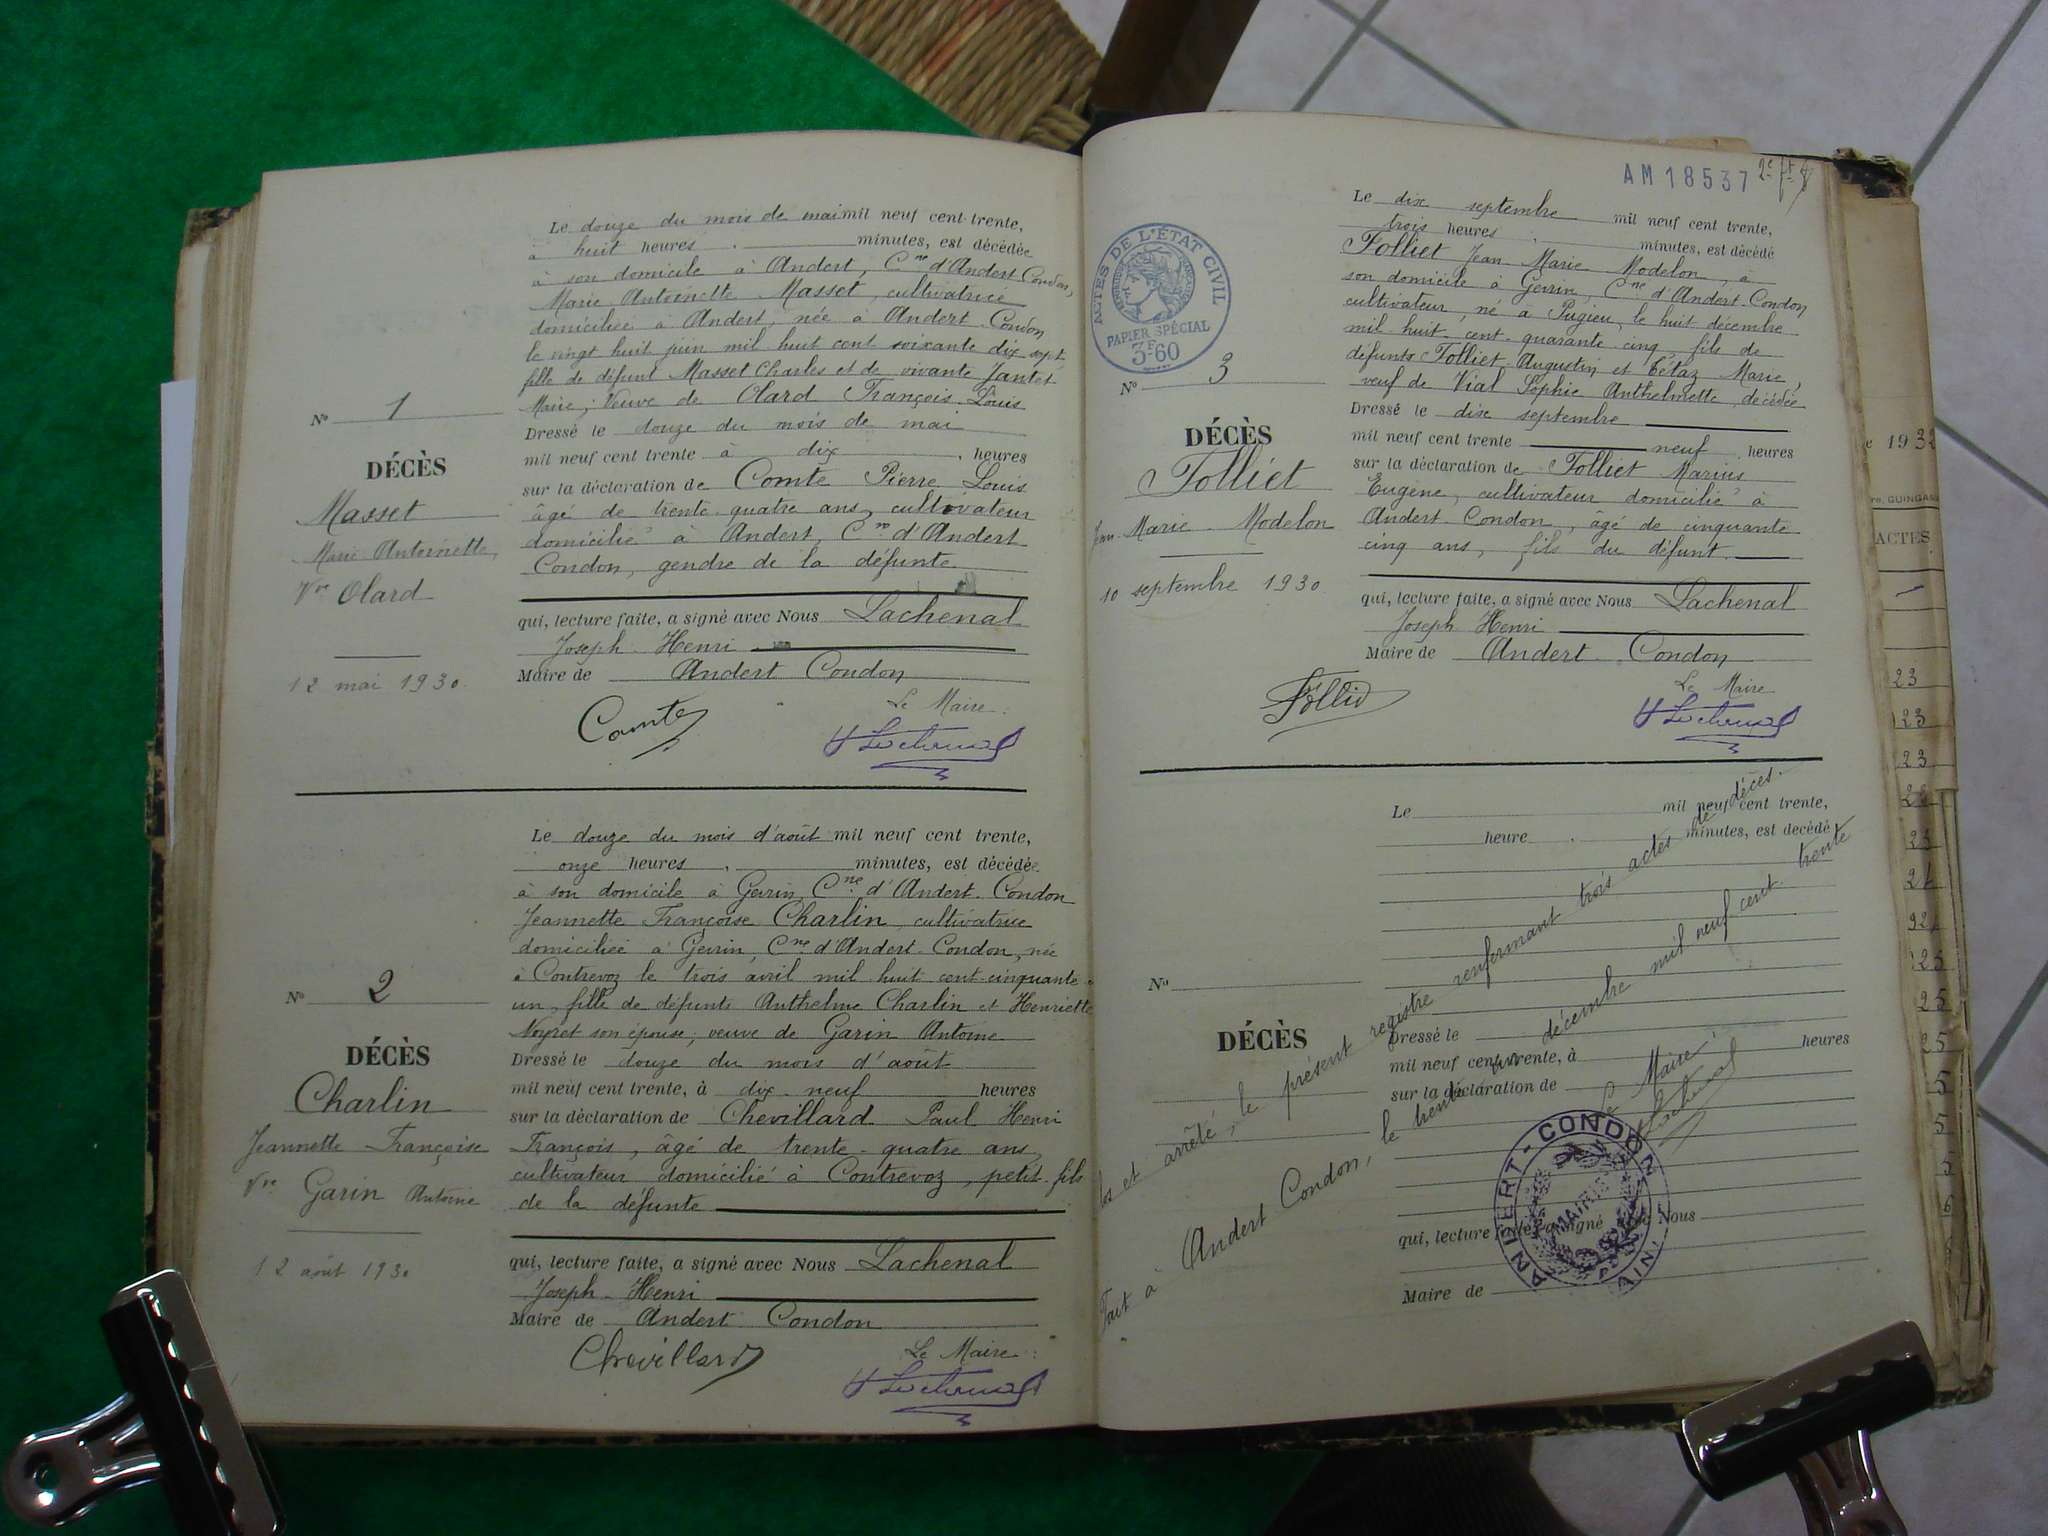 Le douze du mois de mai mil neuf cent trente,
à huit heures . minutes, est décédée
à son domicile à Andert, Cne d'Andert Condon,
Marie Antoinette Masset, cultivatrice
domiciliée à Andert, née à Andert-Condon
le vingt huit juin mil huit cent soixante dix sept
fille de défunt Masset Charles et de vivante Jantet
Marie; Veuve de Olard François-Louis
Dressé le douze du mois de mai
mil neuf cent trente à dix heures
sur la déclaration de Comte Pierre Louis
âgé de trente-quatre ans, cultivateur
domicilié à Andert, Cne d'Andert
Condon, gendre de la défunte
qui, lecture faite, a signé avec Nous Lachenal
Joseph-Henri
Maire de Andert Condon
Le Maire:
Comte
H Lachenal
No 1
DÉCÈS
Masset
Marie Antoinette,
Vve Olard
12 mai 1930.
Le douze du mois d'août mil neuf cent trente,
onze heures . minutes, est décédée
à son domicile à Gevrin, Cne d'Andert-Condon
Jeannette Françoise Charlin, cultivatrice
domiciliée à Gevrin, Cne d'Andert-Condon, née
à Contrevoz le trois avril mil huit cent-cinquante-
un, fille de défunts Anthelme Charlin et Henriette
Noyret son épouse, veuve de Garin Antoine
Dressé le douze du mois d'août
mil neuf cent trente, à dix-neuf heures
sur la déclaration de Chevillard Paul Henri
François, âgé de trente-quatre ans,
cultivateur domicilié à Contrevoz, petit-fils
de la défunte
qui, lecture faite, a signé avec Nous Lachenal
Joseph-Henri
Maire de Andert Condon
Le Maire:
Chevillard
H Lachenal
No 2
DÉCÈS
Charlin
Jeannette Françoise
Vve Garin Antoine
12 août 1930
AM 18537
ACTES DE L'ÉTAT CIVIL
PAPIER SPÉCIAL
3F60
Le dix septembre mil neuf cent trente,
trois heures . minutes, est décédé
Folliet Jean Marie Modelon, à
son domicile à Gevrin, Cne d'Andert-Condon
cultivateur, né à Pugieu, le huit décembre
mil-huit-cent-quarante-cinq, fils de
défunts Folliet Augustin et Cétaz Marie,
veuf de Vial Sophie Anthelmette, décédée
Dressé le dix septembre
mil neuf cent trente neuf heures
sur la déclaration de Folliet Marius
Eugène, cultivateur domicilié à
Andert-Condon, âgé de cinquante
cinq ans, fils du défunt.
qui, lecture faite, a signé avec Nous Lachenal
Joseph Henri
Maire de Andert-Condon
Le Maire
H Lachenal
No 3
DÉCÈS
Folliet
Jean-Marie-Modelon
10 septembre 1930.
Le mil neuf cent trente,
heure . minutes, est décédé
No
DÉCÈS
Dressé le
mil neuf cent trente, à heures
sur la déclaration de
qui, lecture faite, a signé avec Nous
Maire de
los et arrêté, le présent registre renfermant trois actes de décès.
Fait à Andert Condon, le trente un décembre mil neuf cent trente
Le Maire:
Lachenal
ANDERT-CONDON
MAIRIE
AIN
ACTES
23
23
23
25
25
25
5
5
5
6